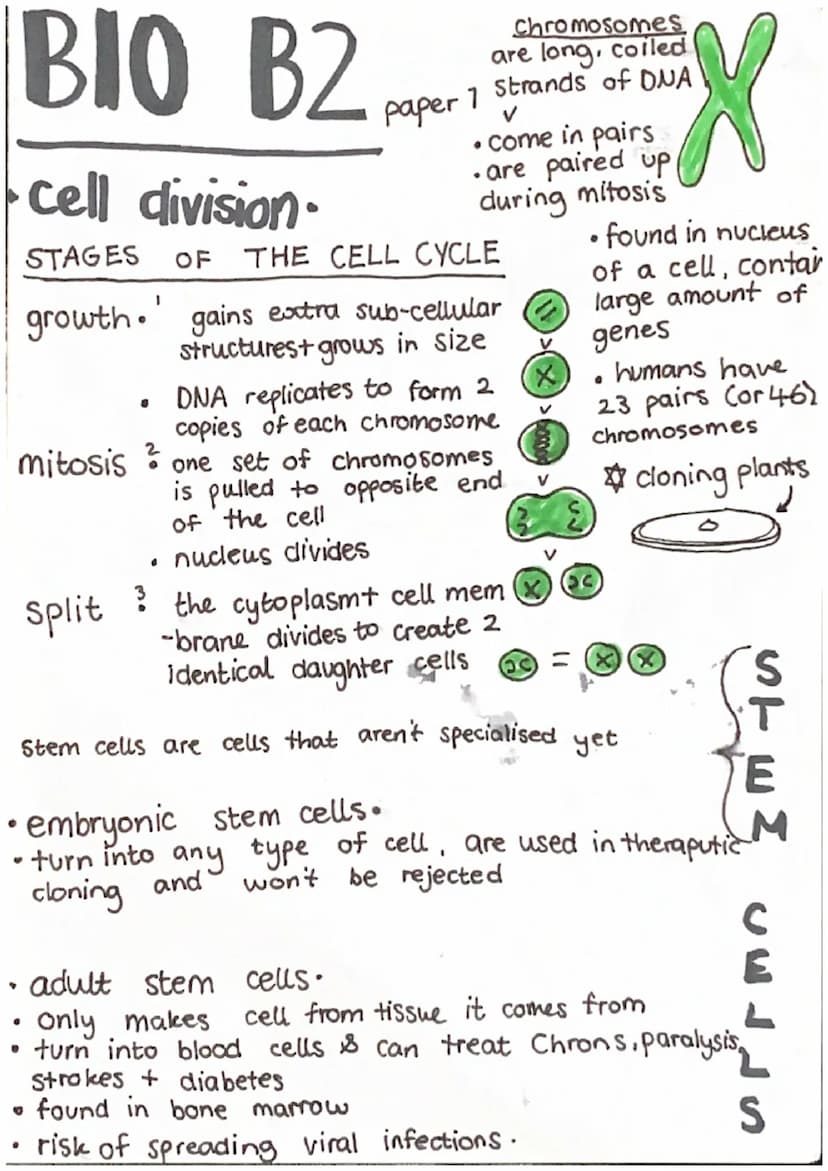 BIO B2
paper 1
chromosomes
are long, coiled
strands of DNA
• come in pairs
• are paired up
during mitosis
• cell division •
STAGES OF THE CELL CYCLE
• found in nucleus
of a cell, contai
large amount of
genes
• humans have
23 pairs (or 46)
chromosomes
☆ cloning plants
growth • 1 gains extra sub-cellular
structures + grows in size
• DNA replicates to form 2
copies of each chromosome
mitosis 2 • one set of chromosomes
is pulled to opposite end
of the cell
• nucleus divides
split 3 • the cytoplasm + cell mem
-brane divides to create 2
identical daughter cells
=
STEM CELLS
Stem cells are cells that aren't specialised yet
• embryonic stem cells •
• turn into any type of cell, are used in theraputic
cloning and won't be rejected
• adult stem cells •
• only makes cell from tissue it comes from
• turn into blood cells & can treat Chrons, paralysis,
strokes + diabetes
• found in bone marrow
• risk of spreading viral infections •